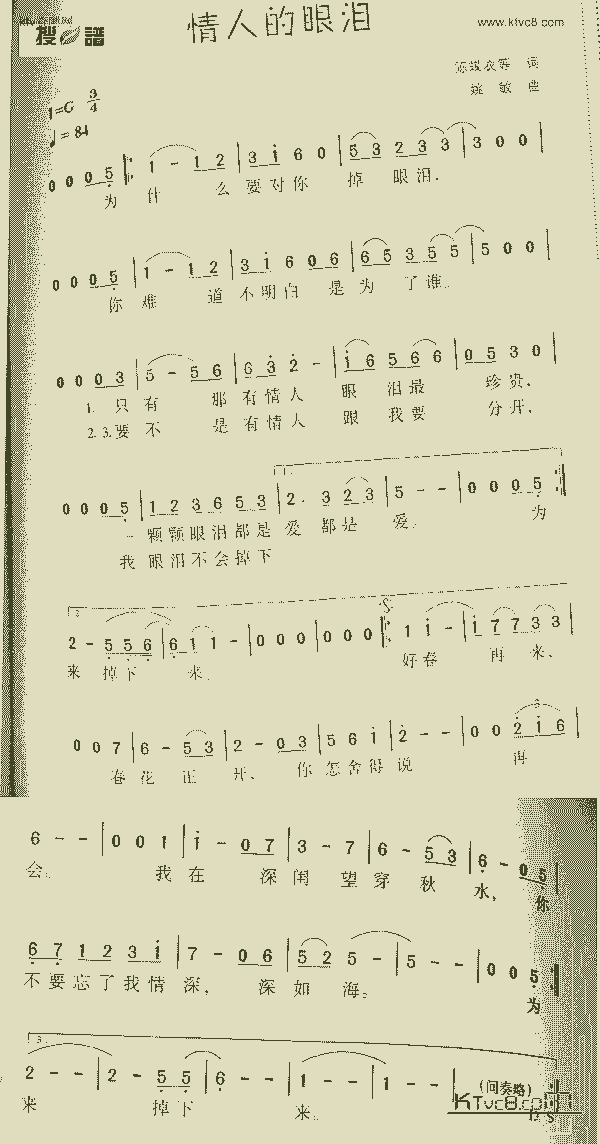 搜 谱
情人的眼泪
www.ktvc8.com
陈蝶衣等 词
姚 敏 曲
1=G 3/4
♩=84
0 0 0 5 1 - 1 2 3 i 6 0 5 3 2 3 3 3 0 0
为 什 么 要 对 你 掉 眼 泪,
0 0 0 5 1 - 1 2 3 i 6 0 6 6 5 3 5 5 5 0 0
你 难 道 不 明 白 是 为 了 谁。
0 0 0 3 5 - 5 6 6 3 2 - i 6 5 6 6 0 5 3 0
1. 只 有 那 有 情 人 眼 泪 最 珍 贵,
2.3.要 不 是 有 情 人 跟 我 要 分 开,
0 0 0 5 1 2 3 6 5 3 2· 3 2 3 5 - - 0 0 0 5
一 颗 颗 眼 泪 都 是 爱 都 是 爱。 为
我 眼 泪 不 会 掉 下
2 - 5 5 6 6 1 1 - 0 0 0 0 0 0 1 i - i 7 7 3 3
来 掉 下 来。 好 春 再 来,
0 0 7 6 - 5 3 2 - 0 3 5 6 i 2 - - 0 0 2 i 6
春 花 正 开, 你 怎 舍 得 说 再
6 - - 0 0 1 i - 0 7 3 - 7 6 - 5 3 6 - 0 5
会。 我 在 深 闺 望 穿 秋 水, 你
6 7 1 2 3 i 7 - 0 6 5 2 5 - 5 - - 0 0 5
不 要 忘 了 我 情 深, 深 如 海。 为
3.
2 - - 2 - 5 5 6 - - 1 - - 1 - - (间奏略)
来 掉 下 来。 KTvc8.com
D.S.